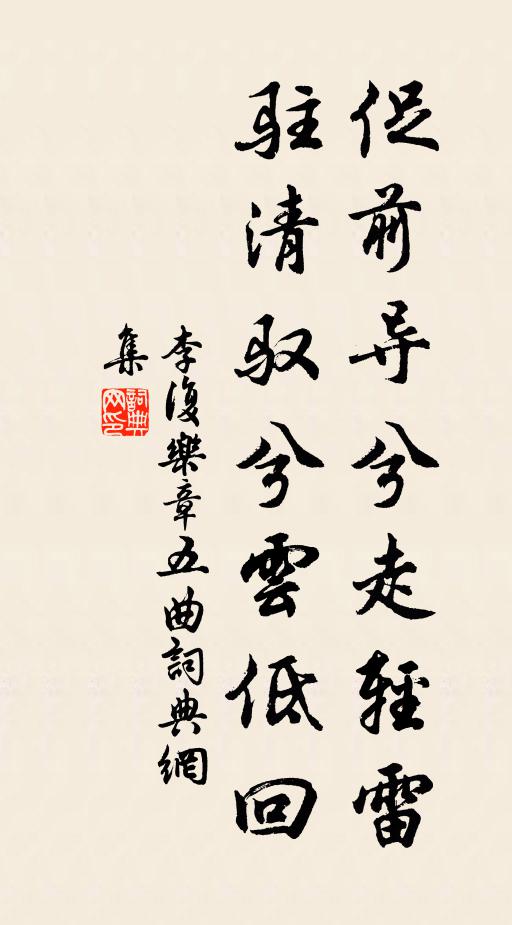 促前导兮走輕雷
驻清驭兮雲低回
李復樂章五曲詞典網
集
詞典
网印